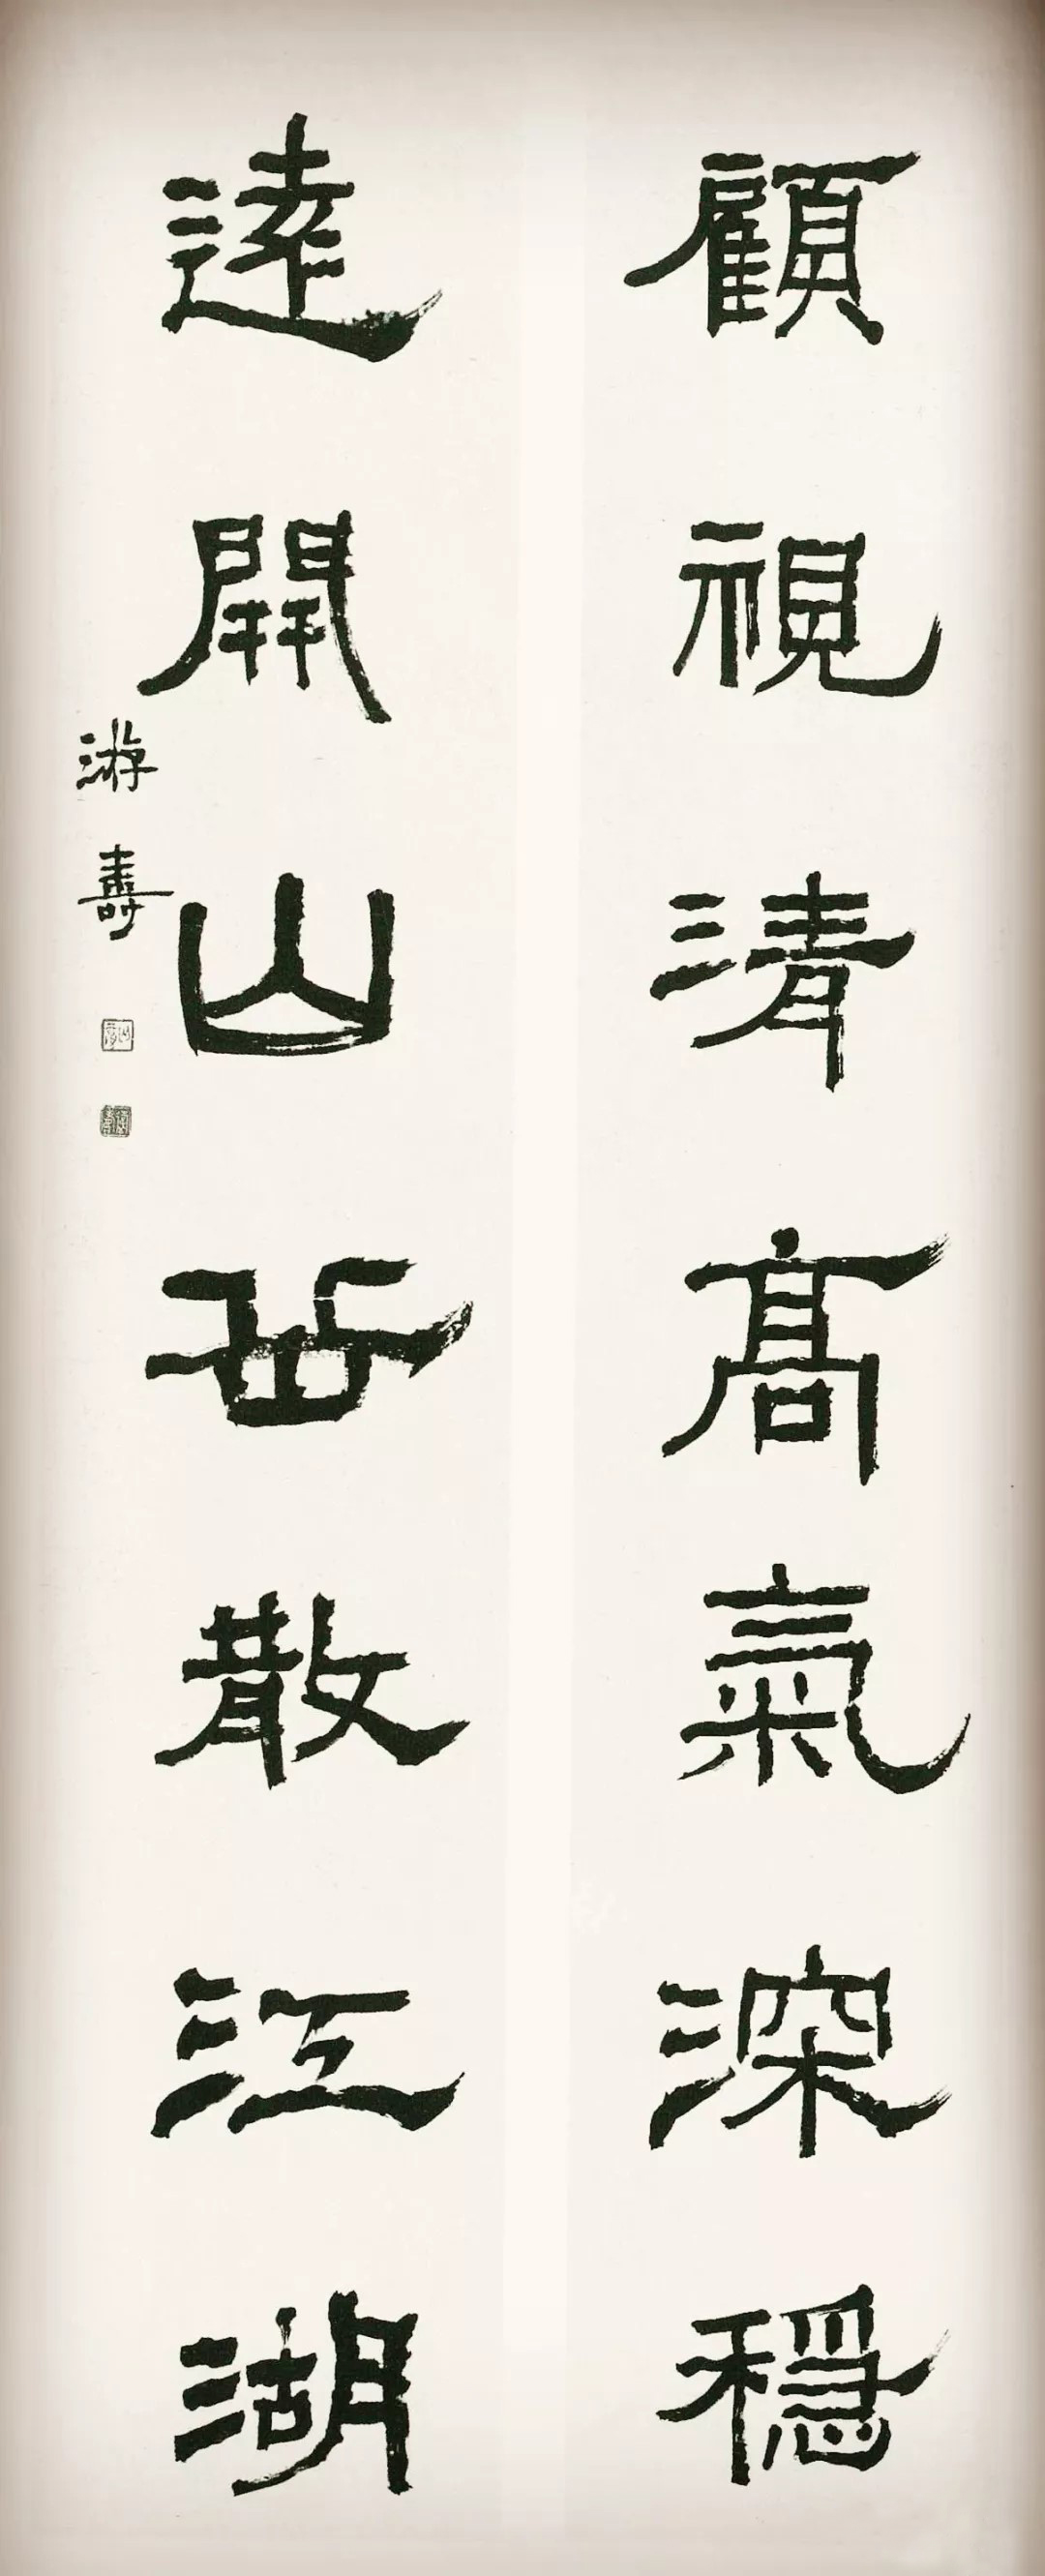 顧視清高氣深穩
遠開山岳散江湖
游壽